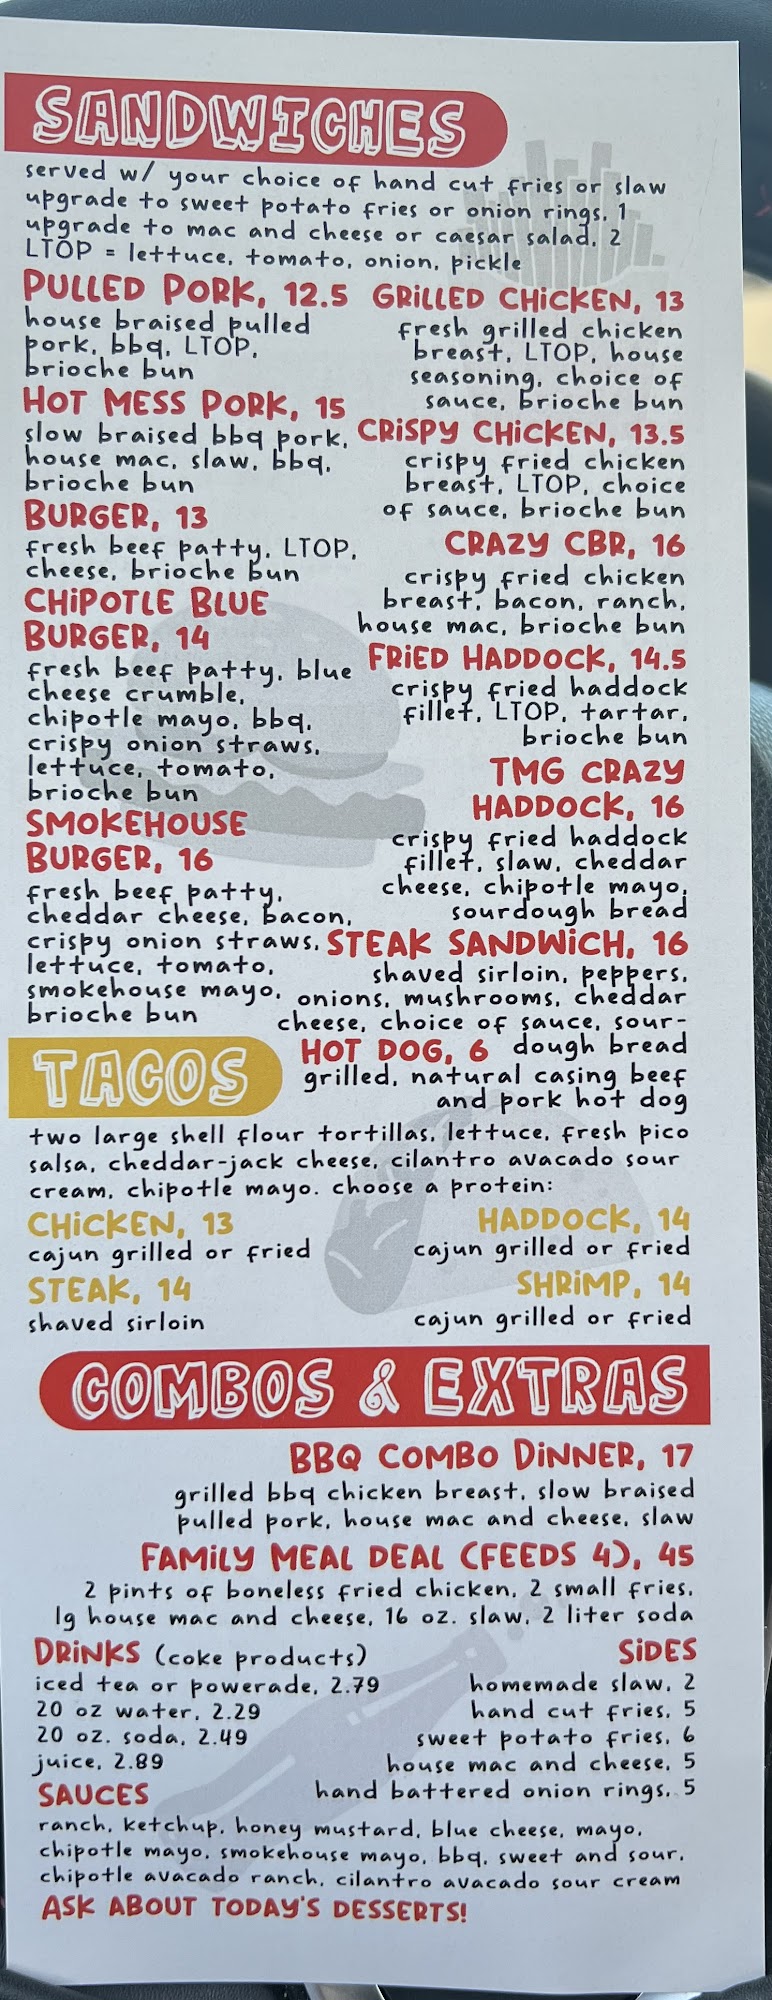 SANDWICHES
served w/ your choice of hand cut fries or slaw
upgrade to sweet potato fries or onion rings, 1
upgrade to mac and cheese or caesar salad, 2
LTOP = lettuce, tomato, onion, pickle
PULLED PORK, 12.5
house braised pulled
pork, bbq, LTOP,
brioche bun
HOT MESS PORK, 15
slow braised bbq pork,
house mac, slaw, bbq,
brioche bun
BURGER, 13
fresh beef patty, LTOP,
cheese, brioche bun
CHIPOTLE BLUE
BURGER, 14
fresh beef patty, blue
cheese crumble,
chipotle mayo, bbq,
crispy onion straws,
lettuce, tomato,
brioche bun
SMOKEHOUSE
BURGER, 16
fresh beef patty,
cheddar cheese, bacon,
crispy onion straws,
lettuce, tomato,
smokehouse mayo,
brioche bun
GRILLED CHICKEN, 13
fresh grilled chicken
breast, LTOP, house
seasoning, choice of
sauce, brioche bun
CRISPY CHICKEN, 13.5
crispy fried chicken
breast, LTOP, choice
of sauce, brioche bun
CRAZY CBR, 16
crispy fried chicken
breast, bacon, ranch,
house mac, brioche bun
FRIED HADDOCK, 14.5
crispy fried haddock
fillet, LTOP, tartar,
brioche bun
TMG CRAZY
HADDOCK, 16
crispy fried haddock
fillet, slaw, cheddar
cheese, chipotle mayo,
sourdough bread
STEAK SANDWICH, 16
shaved sirloin, peppers,
onions, mushrooms, cheddar
cheese, choice of sauce, sour-
dough bread
HOT DOG, 6
grilled, natural casing beef
and pork hot dog
TACOS
two large shell flour tortillas, lettuce, fresh pico
salsa, cheddar-jack cheese, cilantro avacado sour
cream, chipotle mayo. choose a protein:
CHICKEN, 13
cajun grilled or fried
STEAK, 14
shaved sirloin
HADDOCK, 14
cajun grilled or fried
SHRIMP, 14
cajun grilled or fried
COMBOS & EXTRAS
BBQ COMBO DINNER, 17
grilled bbq chicken breast, slow braised
pulled pork, house mac and cheese, slaw
FAMILY MEAL DEAL (FEEDS 4), 45
2 pints of boneless fried chicken, 2 small fries,
lg house mac and cheese, 16 oz. slaw, 2 liter soda
DRINKS (coke products)
iced tea or powerade, 2.79
20 oz water, 2.29
20 oz. soda, 2.49
juice, 2.89
SIDES
homemade slaw, 2
hand cut fries, 5
sweet potato fries, 6
house mac and cheese, 5
hand battered onion rings, 5
SAUCES
ranch, ketchup, honey mustard, blue cheese, mayo,
chipotle mayo, smokehouse mayo, bbq, sweet and sour,
chipotle avacado ranch, cilantro avacado sour cream
ASK ABOUT TODAY'S DESSERTS!